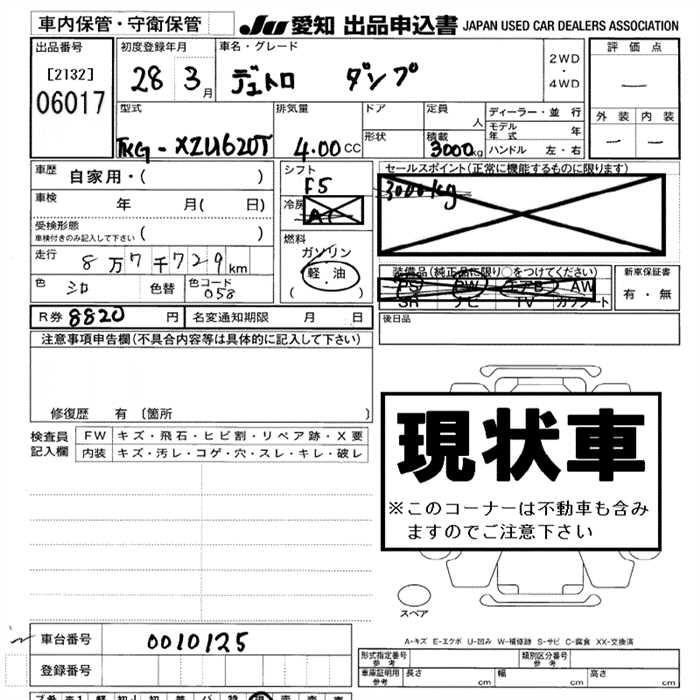 車内保管・守衛保管 JU 愛知 出品申込書 JAPAN USED CAR DEALERS ASSOCIATION
出品番号 [2132] 06017
初度登録年月 28 3月
車名・グレード デュトロ ダンプ
2WD・4WD
評価点 —
外装 内装
— —
型式 TKG-XZU620T
排気量 4.00cc
ドア
形状
定員 人
積載 3000kg
ディーラー・並行
モデル年式 年
ハンドル 左・右
車歴 自家用・( )
車検 年 月( 日)
受検形態 ( )
車検付きのみ記入して下さい
走行 8万7千729km
色 シロ 色替 色コード 058
シフト F5
冷房 AC
燃料
ガソリン
軽・油
( )
セールスポイント(正常に機能するものに限ります)
3000kg
装備品(純正品に限り○をつけてください)
PS PW エアB AW
SR ナビ TV カワシート
新車保証書
有・無
R券 8820円 名変通知期限 月 日
後日品
注意事項申告欄(不具合内容等は具体的に記入して下さい)
修復歴 有〔箇所 〕
検査員記入欄
FW キズ・飛石・ヒビ割・リペア跡・X要
内装 キズ・汚レ・コゲ・穴・スレ・キレ・破レ
現状車
※このコーナーは不動車も含みますのでご注意下さい
スペア
A-キズ E-エクボ U-凹み W-補修跡 S-サビ C-腐食 XX-交換済
車台番号 0010125
登録番号
形式指定番号 参考
類別区分番号 参考
車庫証明用 参考 長さ cm 幅 cm 高さ cm